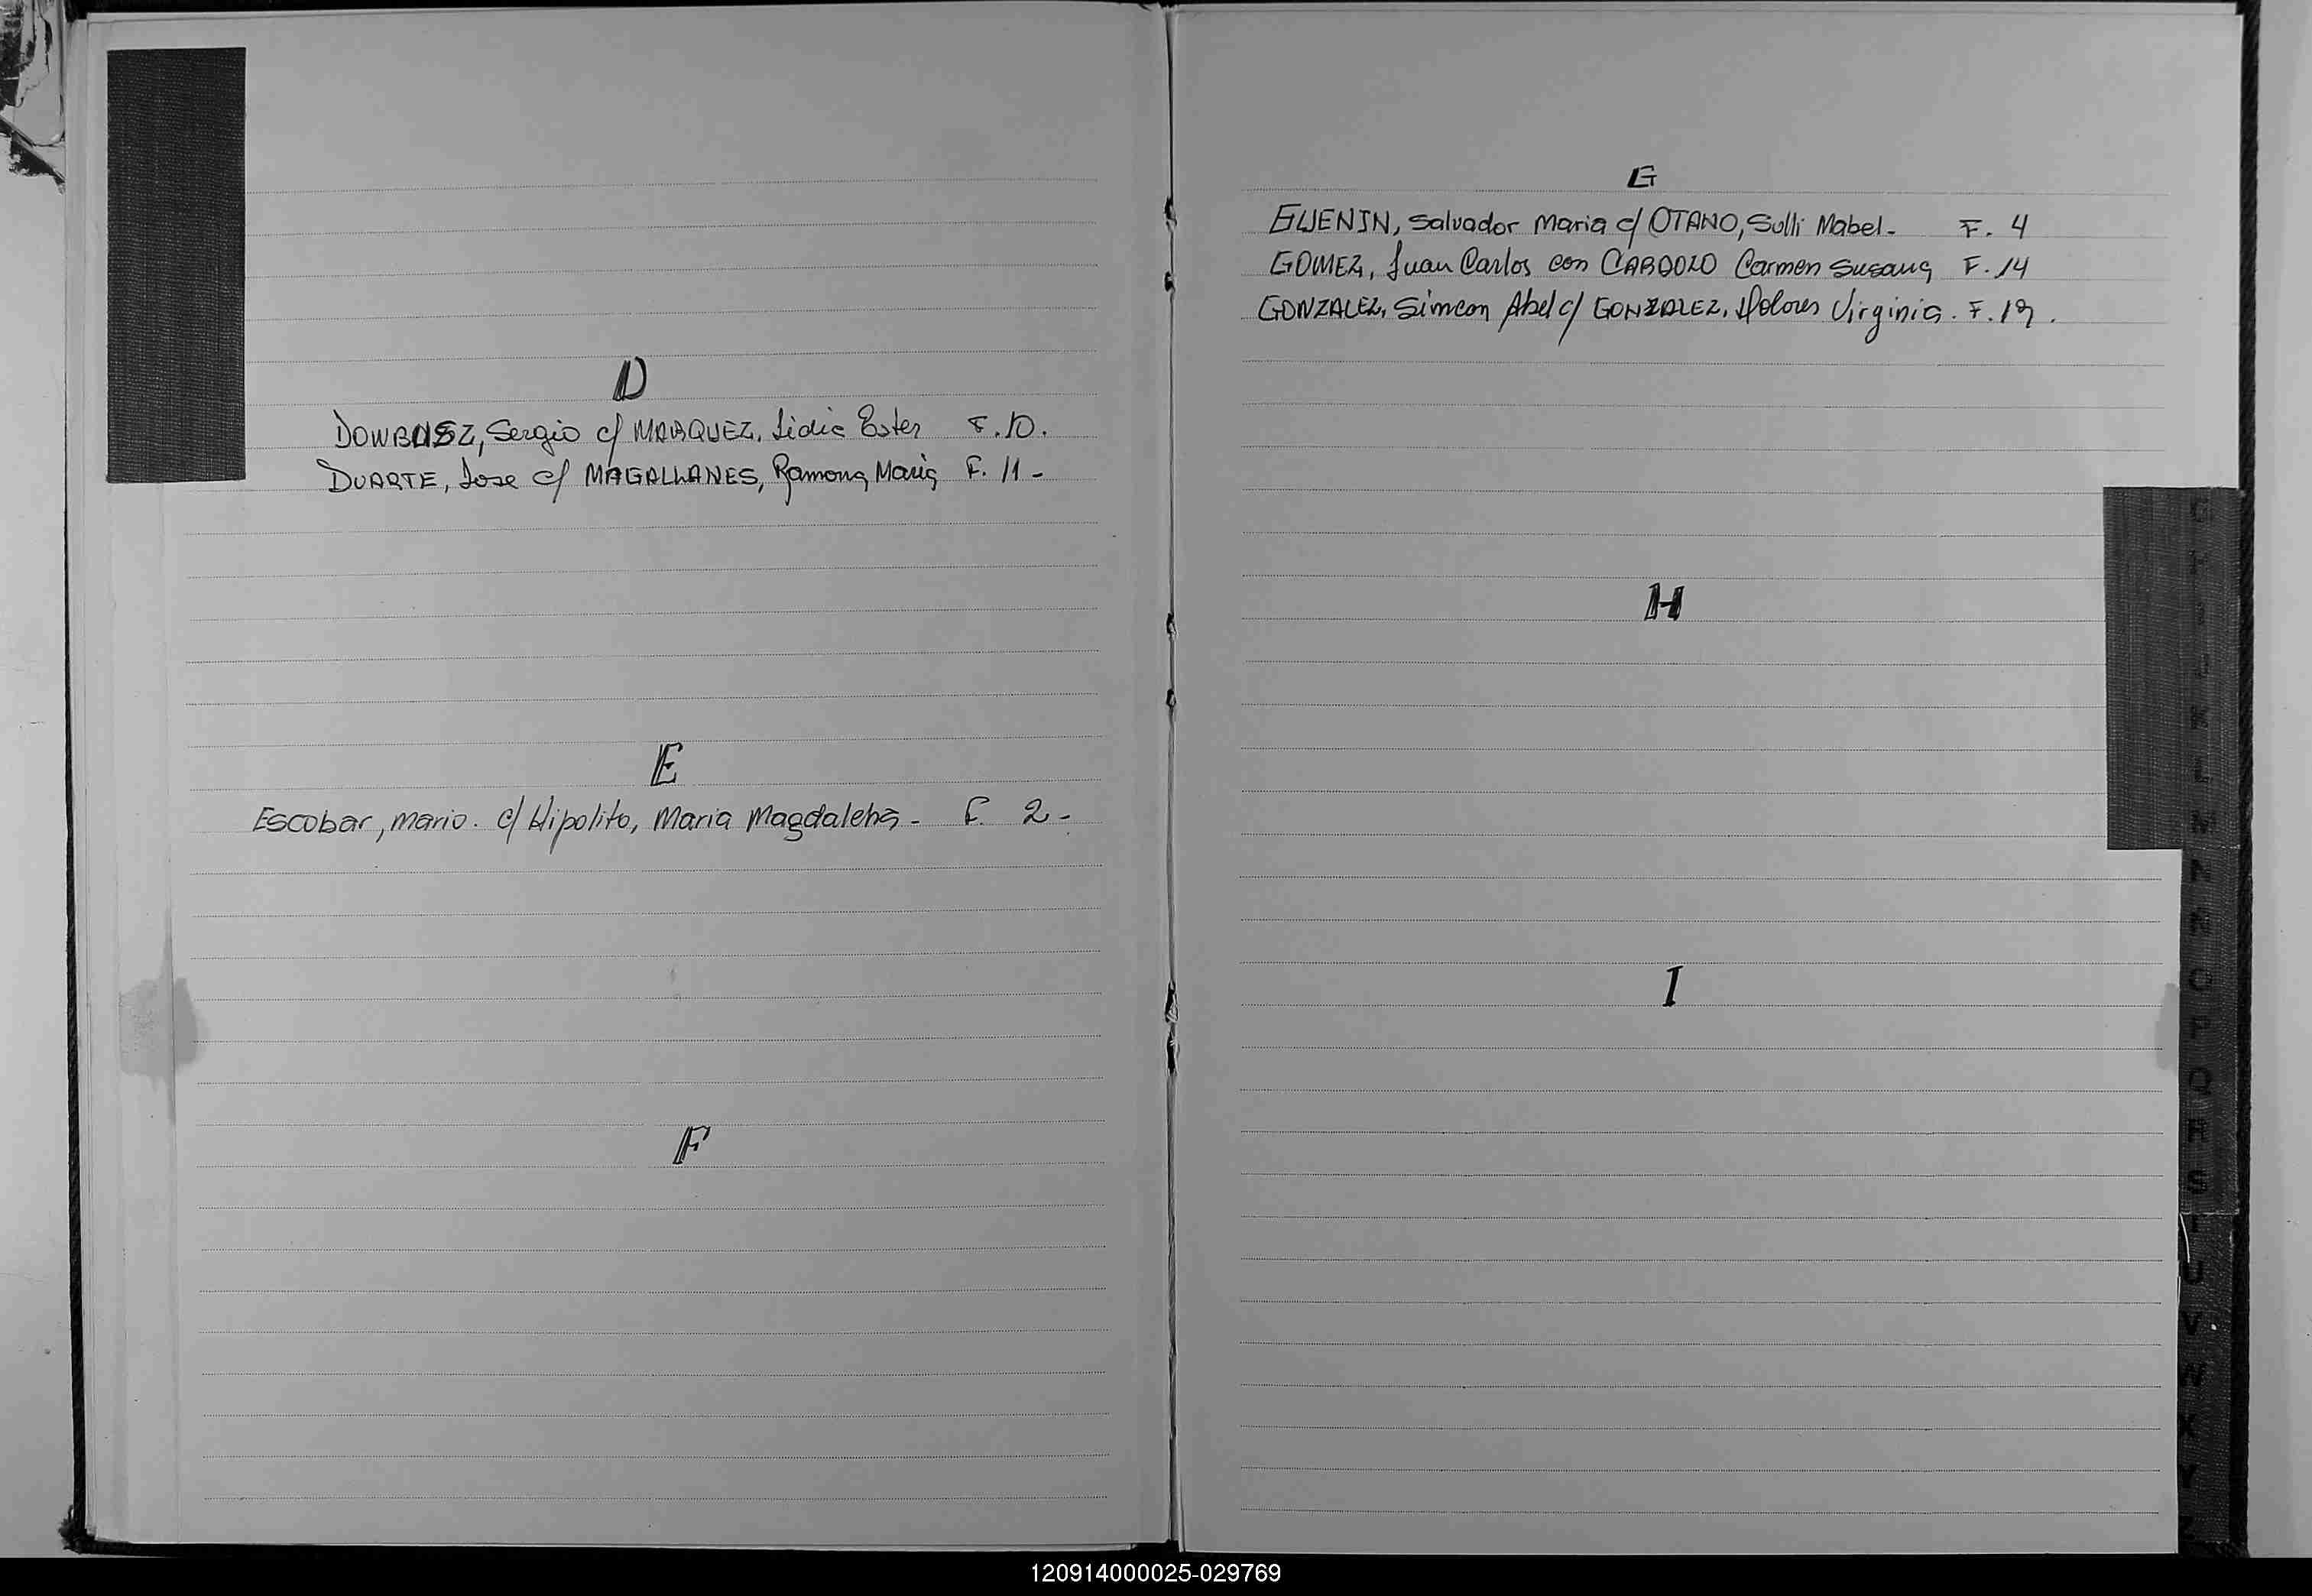 D
DOWBUSZ, Sergio c/ MARQUEZ, Lidia Ester F. 10.
DUARTE, Jose c/ MAGALLANES, Ramona Maria F. 11 -
E
Escobar, mario. c/ Hipolito, Maria Magdalena - F. 2 -
F
G
GUENIN, Salvador Maria c/ OTANO, Sulli Mabel - F. 4
GOMEZ, Juan Carlos con CARDOZO Carmen Susana F. 14
GONZALEZ, Simeon Abel c/ GONZALEZ, Dolores Virginia. F. 19.
H
I
120914000025-029769